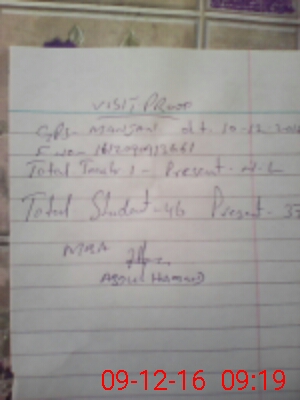 VISIT PROOF
GPS- Mangani dt. 10-12-20
F no- 
Total Teach 1 - Present -
Total Student - 46 Present - 33
MBA
Abdul Hameed
09-12-16 09:19